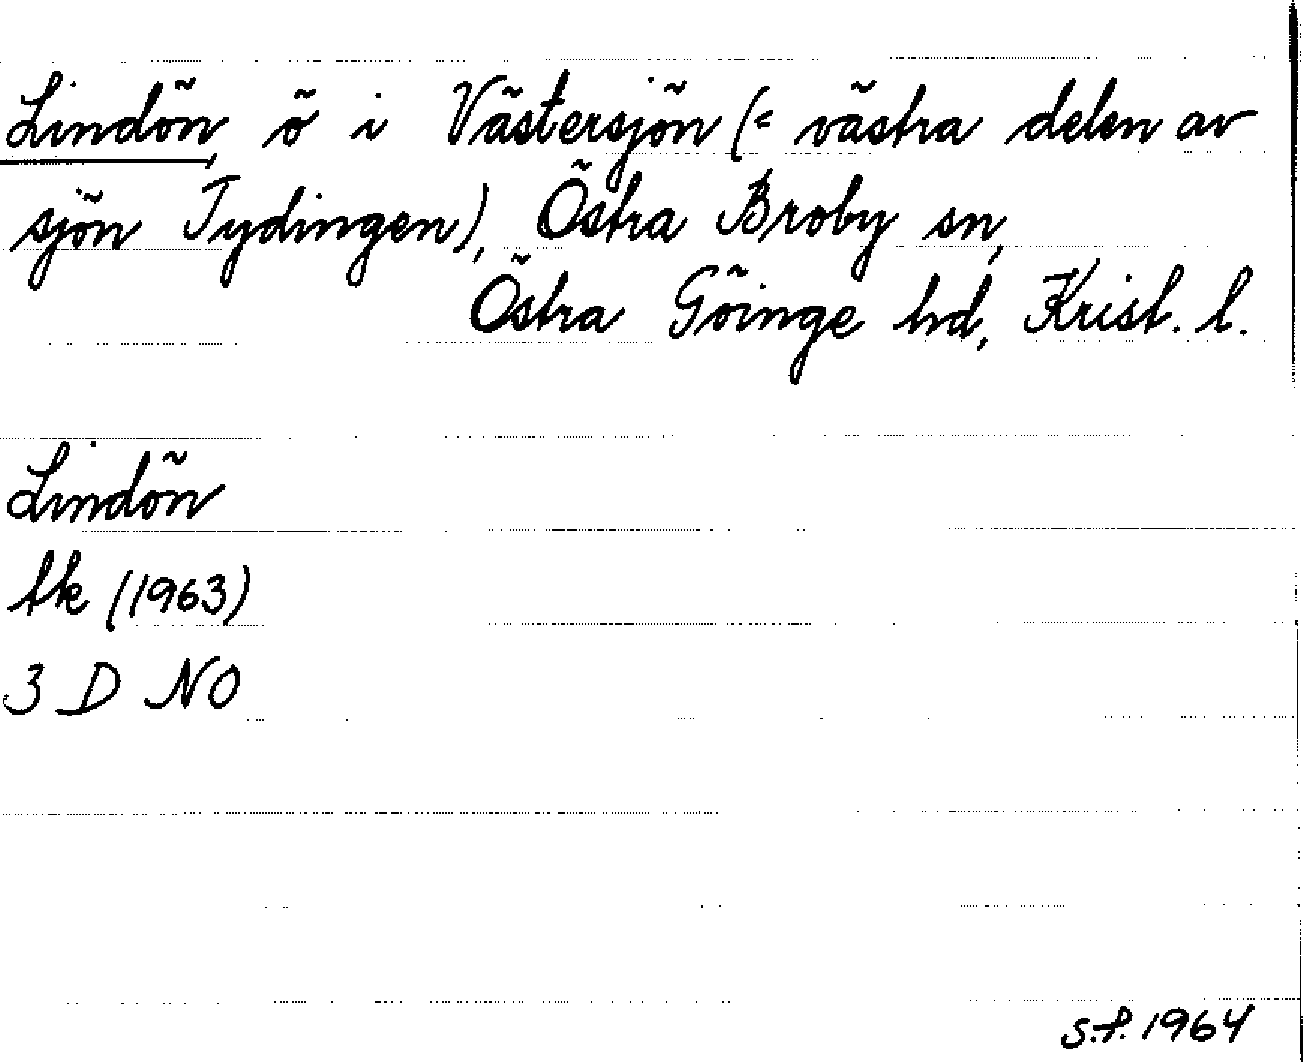 Lindön, ö i Västersjön (= västra delen av
sjön Tydingen), Östra Broby sn,
Östra Göinge hd, Krist. l.
Lindön
tk (1963)
3 D NO
S.F. 1964